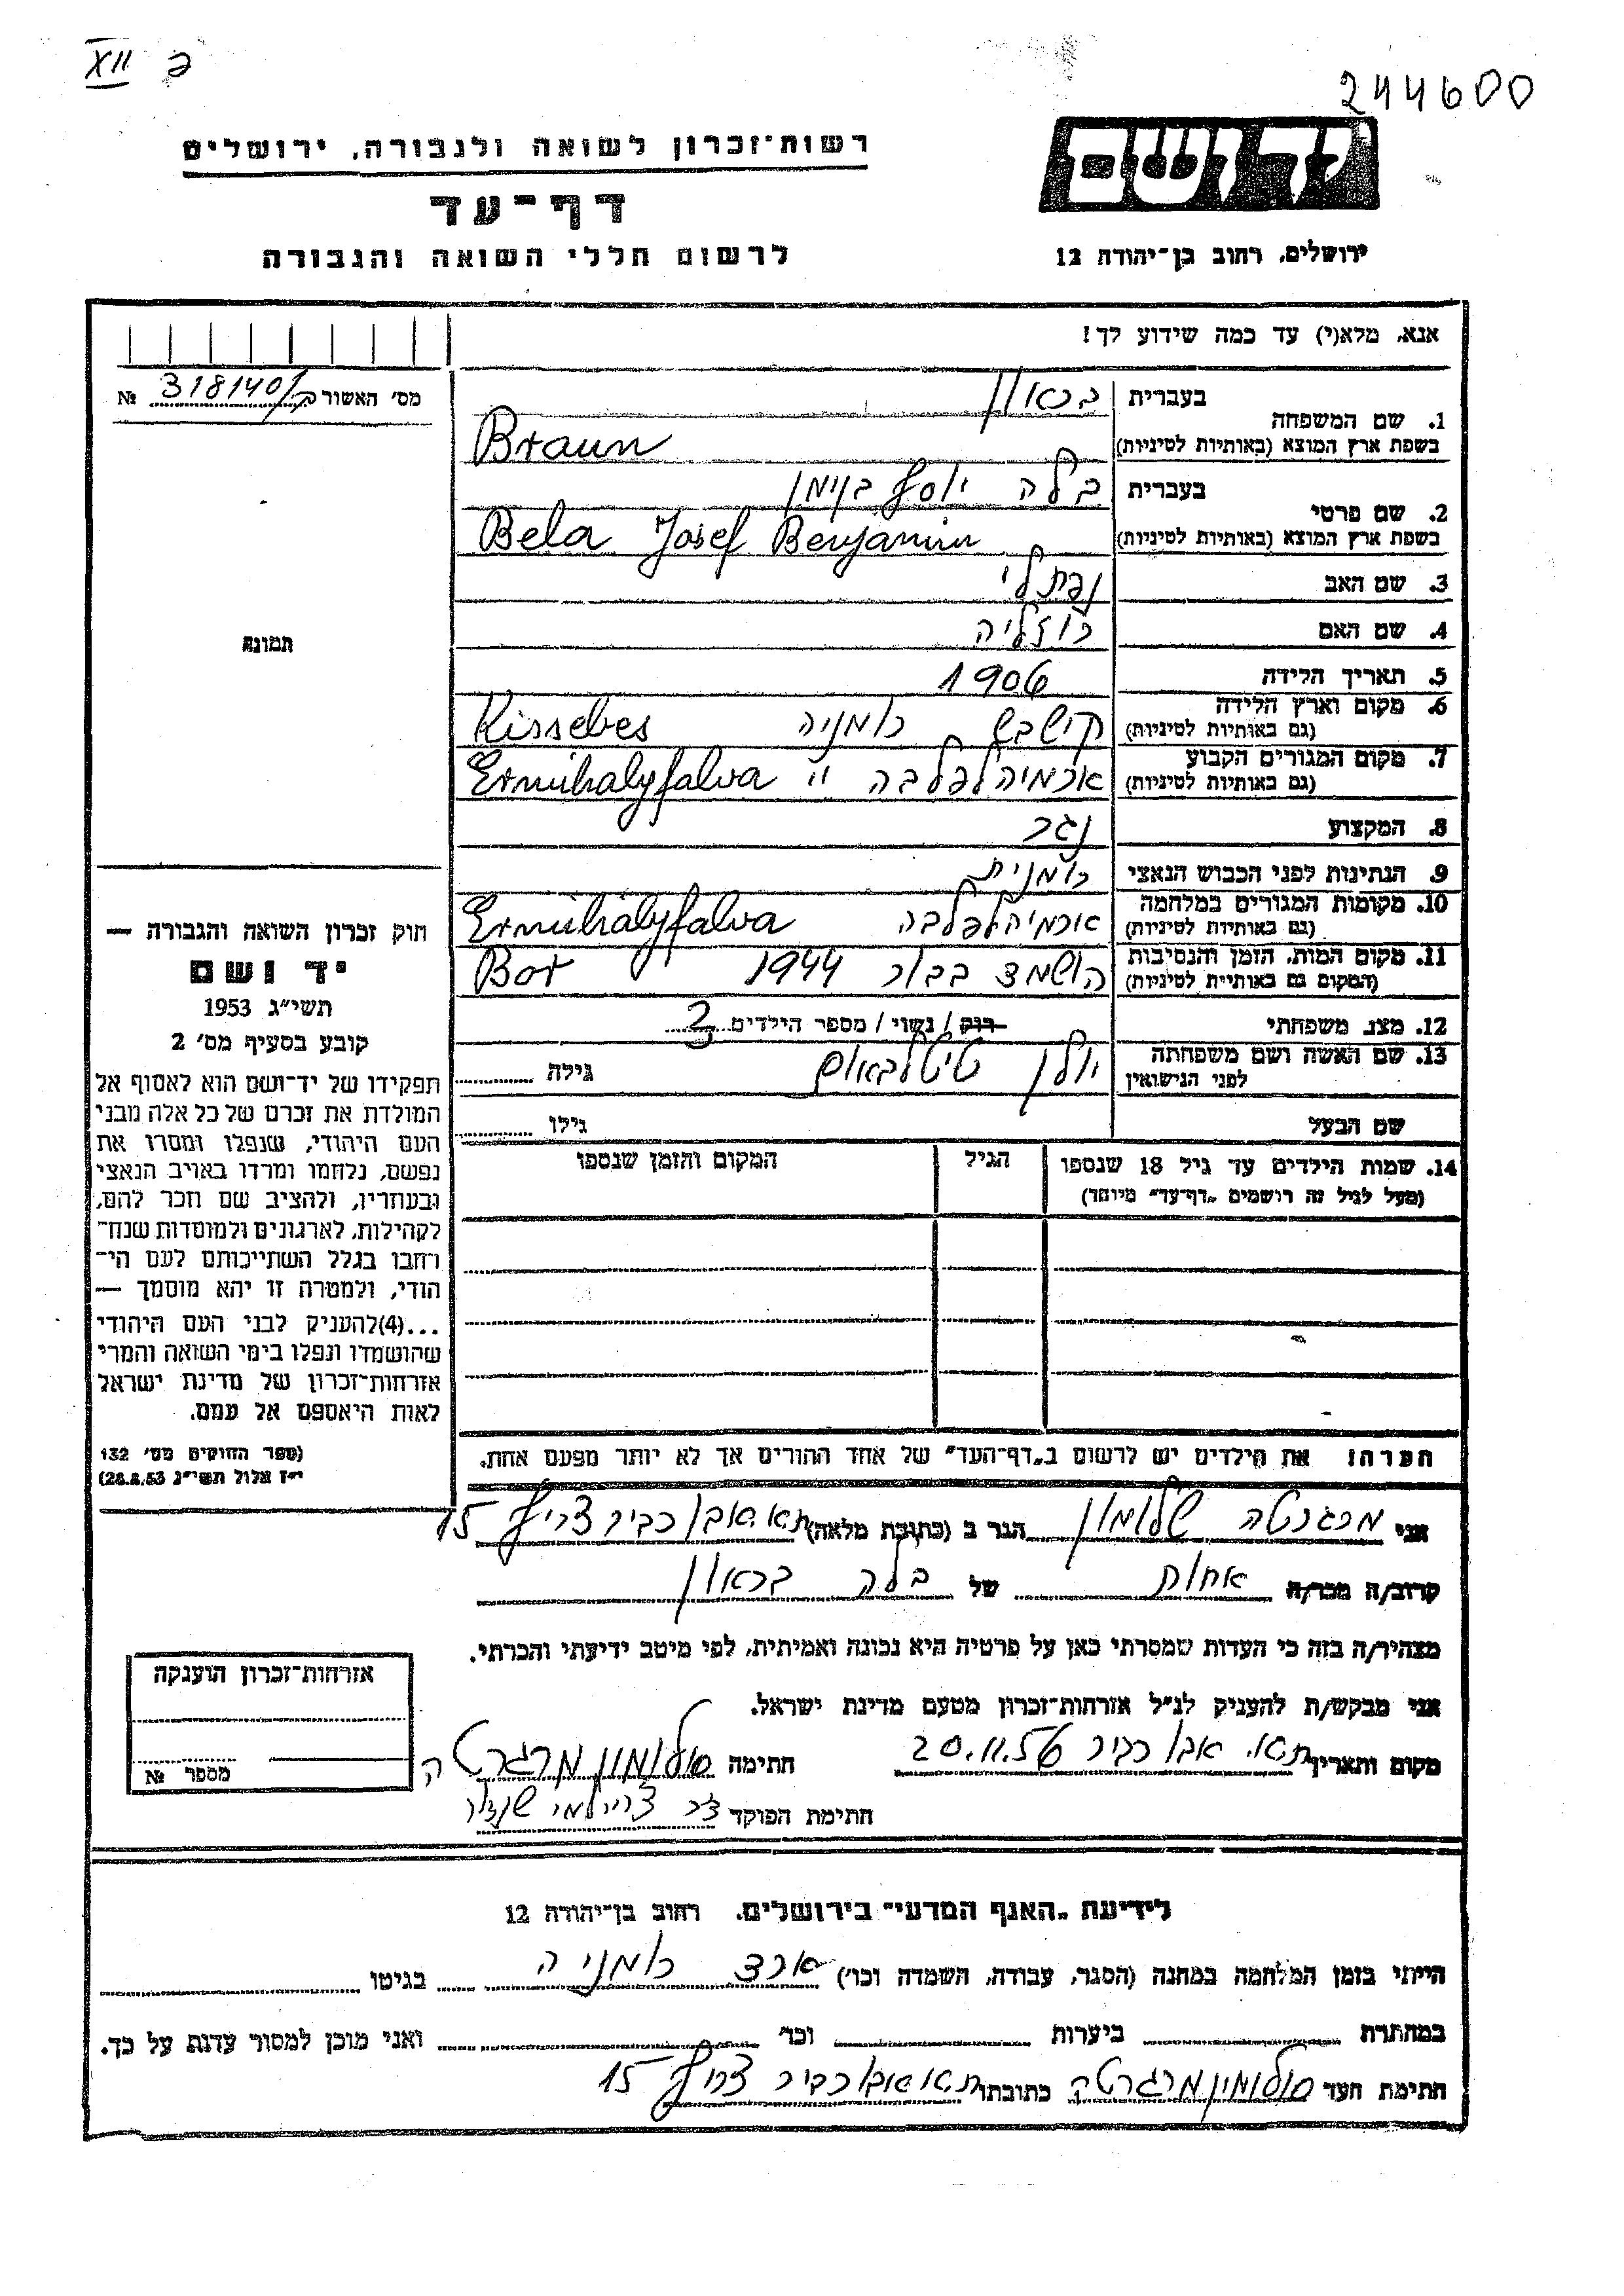 XII ב
244600
יד ושם
רשות-זכרון לשואה ולגבורה, ירושלים
דף-עד
לרשום חללי השואה והגבורה
ירושלים, רחוב בן-יהודה 12
אנא, מלא(י) עד כמה שידוע לך!
מס' האשור 318140/ № 
1. שם המשפחה בעברית בראון
בשפת ארץ המוצא (באותיות לטיניות) Braun
2. שם פרטי בעברית בלה יוסף בנימן
בשפת ארץ המוצא (באותיות לטיניות) Bela Josef Benjamin
3. שם האב נפתלי
4. שם האם רוזליה
5. תאריך הלידה 1906
6. מקום וארץ הלידה קישבש רומניה Kissebes
(גם באותיות לטיניות)
7. מקום המגורים הקבוע ארמיהלפלבה " Ermihalyfalva
(גם באותיות לטיניות)
8. המקצוע נגר
9. הנתינות לפני הכבוש הנאצי רומנית
10. מקומות המגורים במלחמה ארמיהלפלבה Ermihályfalva
(גם באותיות לטיניות)
11. מקום המות, הזמן והנסיבות הושמד בבור 1944 Bor
(המקום גם באותיות לטיניות)
12. מצב משפחתי רוק / נשוי / מספר הילדים 3
13. שם האשה ושם משפחתה לפני הנישואין יולן טיטלבאום גילה
שם הבעל גילו
14. שמות הילדים עד גיל 18 שנספו הגיל המקום והזמן שנספו
(מעל לגיל זה רושמים „דף-עד" מיוחד)
תמונה
חוק זכרון השואה והגבורה —
יד ושם
תשי"ג 1953
קובע בסעיף מס' 2
תפקידו של יד-ושם הוא לאסוף אל
המולדת את זכרם של כל אלה מבני
העם היהודי, שנפלו ומסרו את
נפשם, נלחמו ומרדו באויב הנאצי
ובעוזריו, ולהציב שם וזכר להם,
לקהילות, לארגונים ולמוסדות שנח-
רבו בגלל השתייכותם לעם הי-
הודי, ולמטרה זו יהא מוסמך —
...(4)להעניק לבני העם היהודי
שהושמדו ונפלו בימי השואה והמרי
אזרחות-זכרון של מדינת ישראל
לאות היאספם אל עמם.
(ספר החוקים מס' 132
י"ז אלול תשי"ג 28.8.53)
הערה! את הילדים יש לרשום ב„דף-העד" של אחד ההורים אך לא יותר מפעם אחת.
אני מרגרטה שלומון הגר ב (כתובת מלאה) ת.א. אבו כביר צריף 15
קרוב/ה מכר/ה אחות של בלה בראון
מצהיר/ה בזה כי העדות שמסרתי כאן על פרטיה היא נכונה ואמיתית, לפי מיטב ידיעתי והכרתי.
אני מבקש/ת להעניק לנ"ל אזרחות-זכרון מטעם מדינת ישראל.
מקום ותאריך ת.א. אבו כביר 20.11.56 חתימה סולומון מרגרטה
חתימת הפוקד
אזרחות-זכרון הוענקה
מספר №
לידיעת „האגף המדעי" בירושלים, רחוב בן-יהודה 12
הייתי בזמן המלחמה במחנה (הסגר, עבודה, השמדה וכו') ארצ רומניה בגיטו
במחתרת ביערות וכו' ואני מוכן למסור עדות על כך.
חתימת העד סולומון מרגרטה כתובתו ת.א. אבו כביר צריף 15